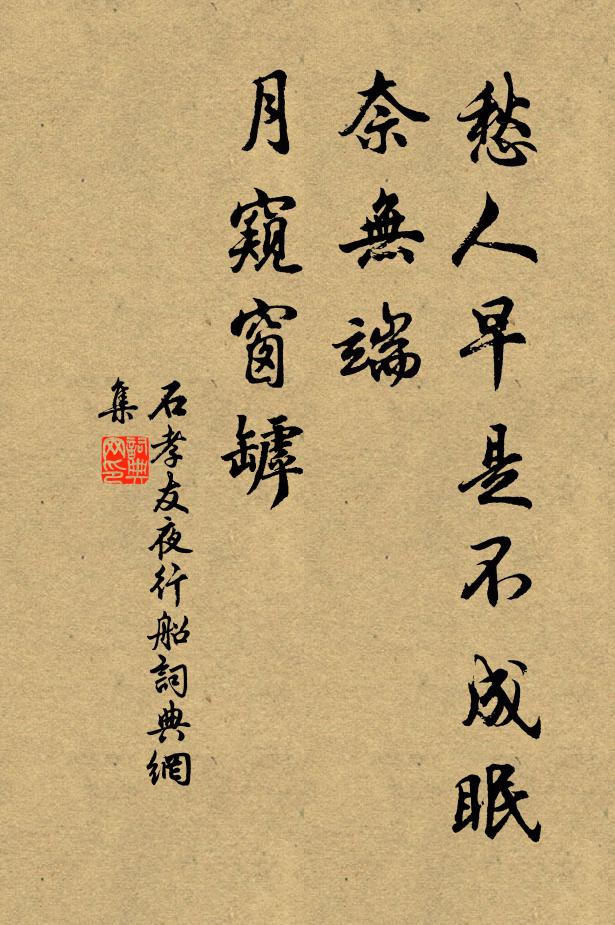 愁人早是不成眠
奈無端
月窺窗罅
石孝友夜行船詞典網
集
詞典
网印